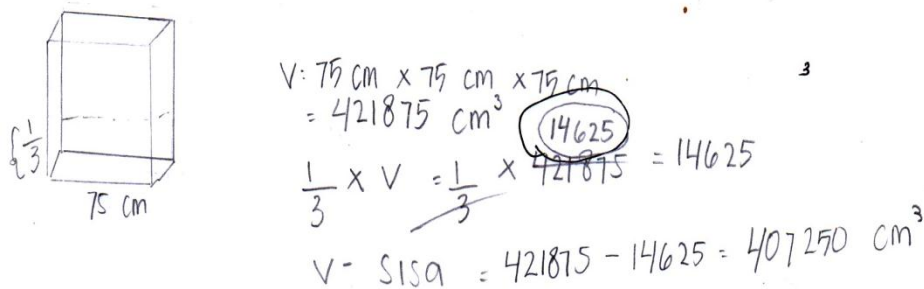 1/3
75 cm
V: 75 cm × 75 cm × 75 cm
= 421875 cm³
14625
1/3 × V = 1/3 × 421875 = 14625
V - sisa = 421875 - 14625 = 407250 cm³
3